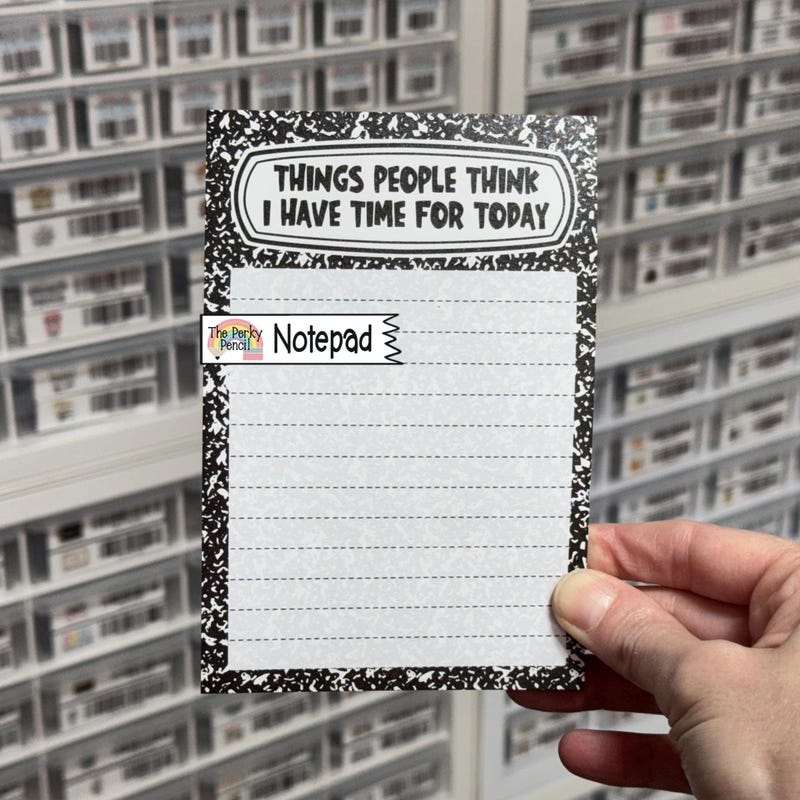 THINGS PEOPLE THINK
I HAVE TIME FOR TODAY
The Perky
Pencil
Notepad